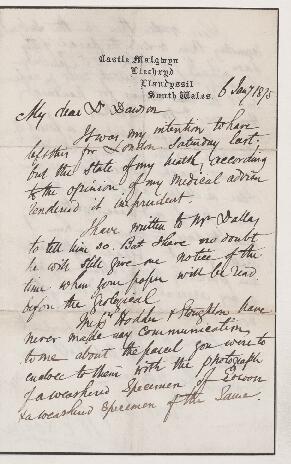 Castle Malgwyn
Llechryd
Llandyssil
South Wales.
6 Jany 1875
My dear Dr Dawson
It was my intention to have
left this for London Saturday last,
but the state of my health, according
to the opinion of my medical adviser
rendered it imprudent.
I have written to Mr Dallas
to tell him so. But I have no doubt
he will still give me notice of the
time when your paper will be read
before the Geological
Messrs Hodder & Stoughton have
never made any communication
to me about the parcel you were to
enclose to them with the photograph
of a weathered specimen of Eozoon
& a weathered specimen of the same.